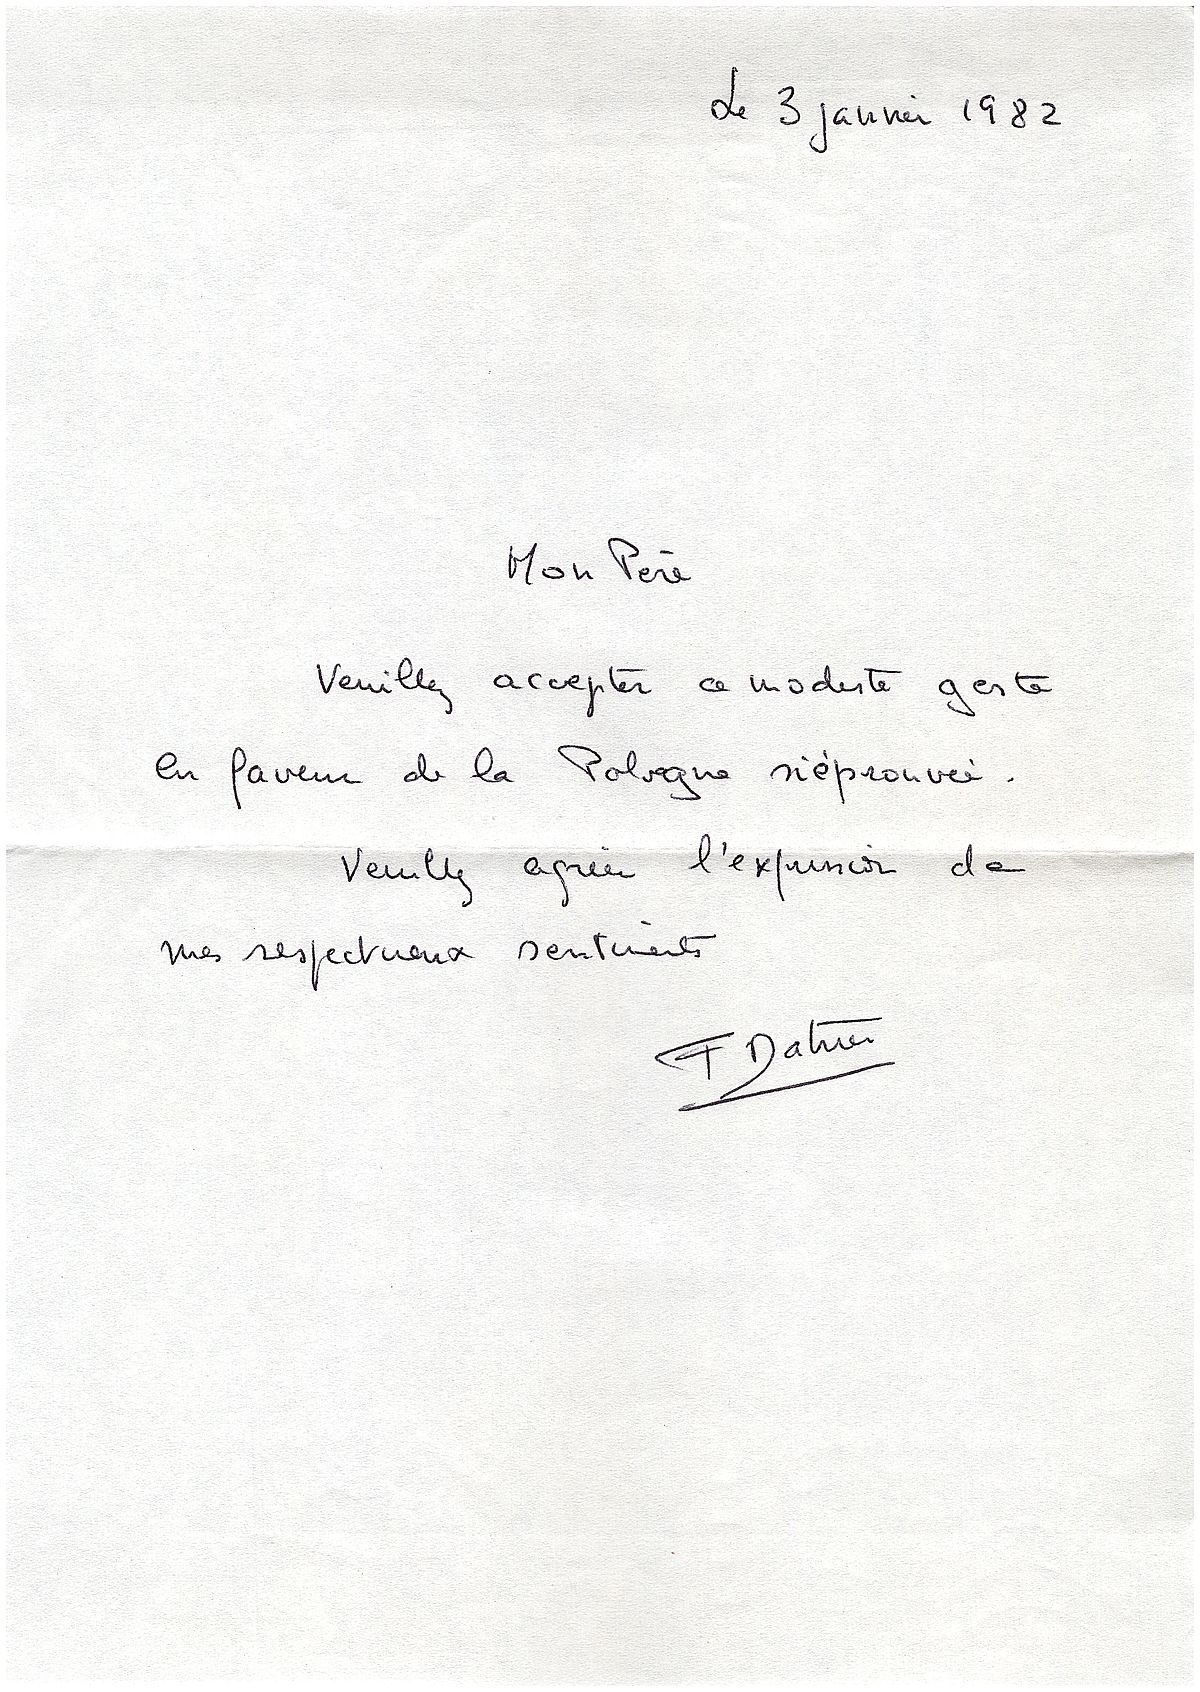 Le 3 janvier 1982
Mon Père
Veuillez accepter ce modeste geste
en faveur de la Pologne si éprouvée.
Veuillez agréer l'expression de
mes respectueux sentiments
F